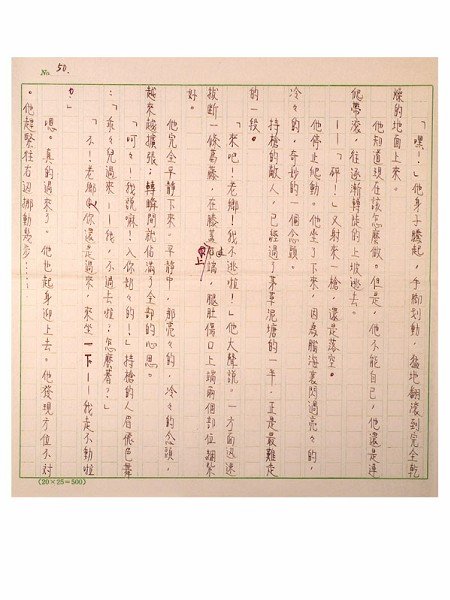 No. 50.
「嘿！」他身子騰起，手腳划動，猛地翻滾到完全乾
燥的地面上來。
他知道現在該怎麼做。但是，他不能自己，他還是連
爬帶滾，往逐漸轉陡的上坡逃去。
——「砰！」又射來一槍，還是落空。
他停止爬動。他坐了下來，因為腦海裏閃過亮々的，
冷々的，奇妙的一個念頭。
持槍的敵人，已經過了茅草泥塘的一半，正是最難走
的一段。
「來吧！老鄉！我不逃啦！」他大聲說。一方面迅速
拔斷一條葛藤，在膝蓋上端，腿肚傷口上端兩個部位綑紮
好。
他完全平靜下來。平靜中，那亮々的，冷々的念頭，
越來越擴張；轉瞬間就佔滿了全部的心思。
「呵々！我說嘛！入你奶々的！」持槍的人眉飛色舞
：「乖々兒過來——我，不過去啦！怎麼着？」
「不！老鄉，你還是過來，來坐一下——我走不動啦
！」
嗯。真的過來了。他也起身迎上去。他發現方位不對
。他趕緊往右邊挪動幾步……
(20×25=500)